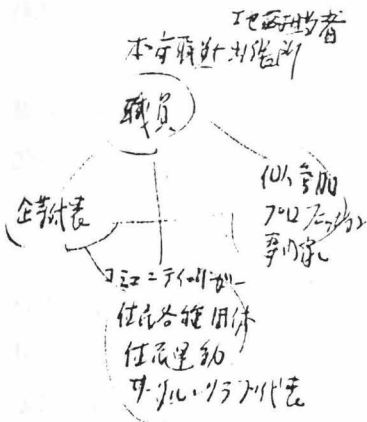 地区担当者
本庁職員 出張所
職員
企業代表
個人参加
プロフェッション
専門家
コミュニティリーダー
住民各種団体
住民運動
サークル・クラブ代表